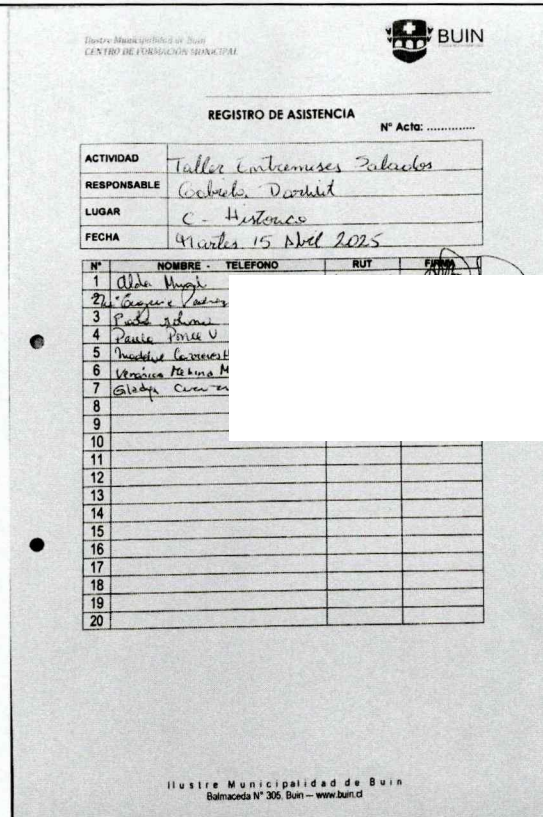 Ilustre Municipalidad de Buin
CENTRO DE FORMACIÓN MUNICIPAL
BUIN
REGISTRO DE ASISTENCIA
N° Acta: ..............
ACTIVIDAD Taller Entremeses Salados
RESPONSABLE
LUGAR C - Historico
FECHA Martes 15 Abril 2025
N° NOMBRE - TELEFONO RUT FIRMA
1 Alda
2
3
4 Paula Ponce V
5
6 Verónica Medina M
7 Gladys
8
9
10
11
12
13
14
15
16
17
18
19
20
Ilustre Municipalidad de Buin
Balmaceda N° 305, Buin – www.buin.cl